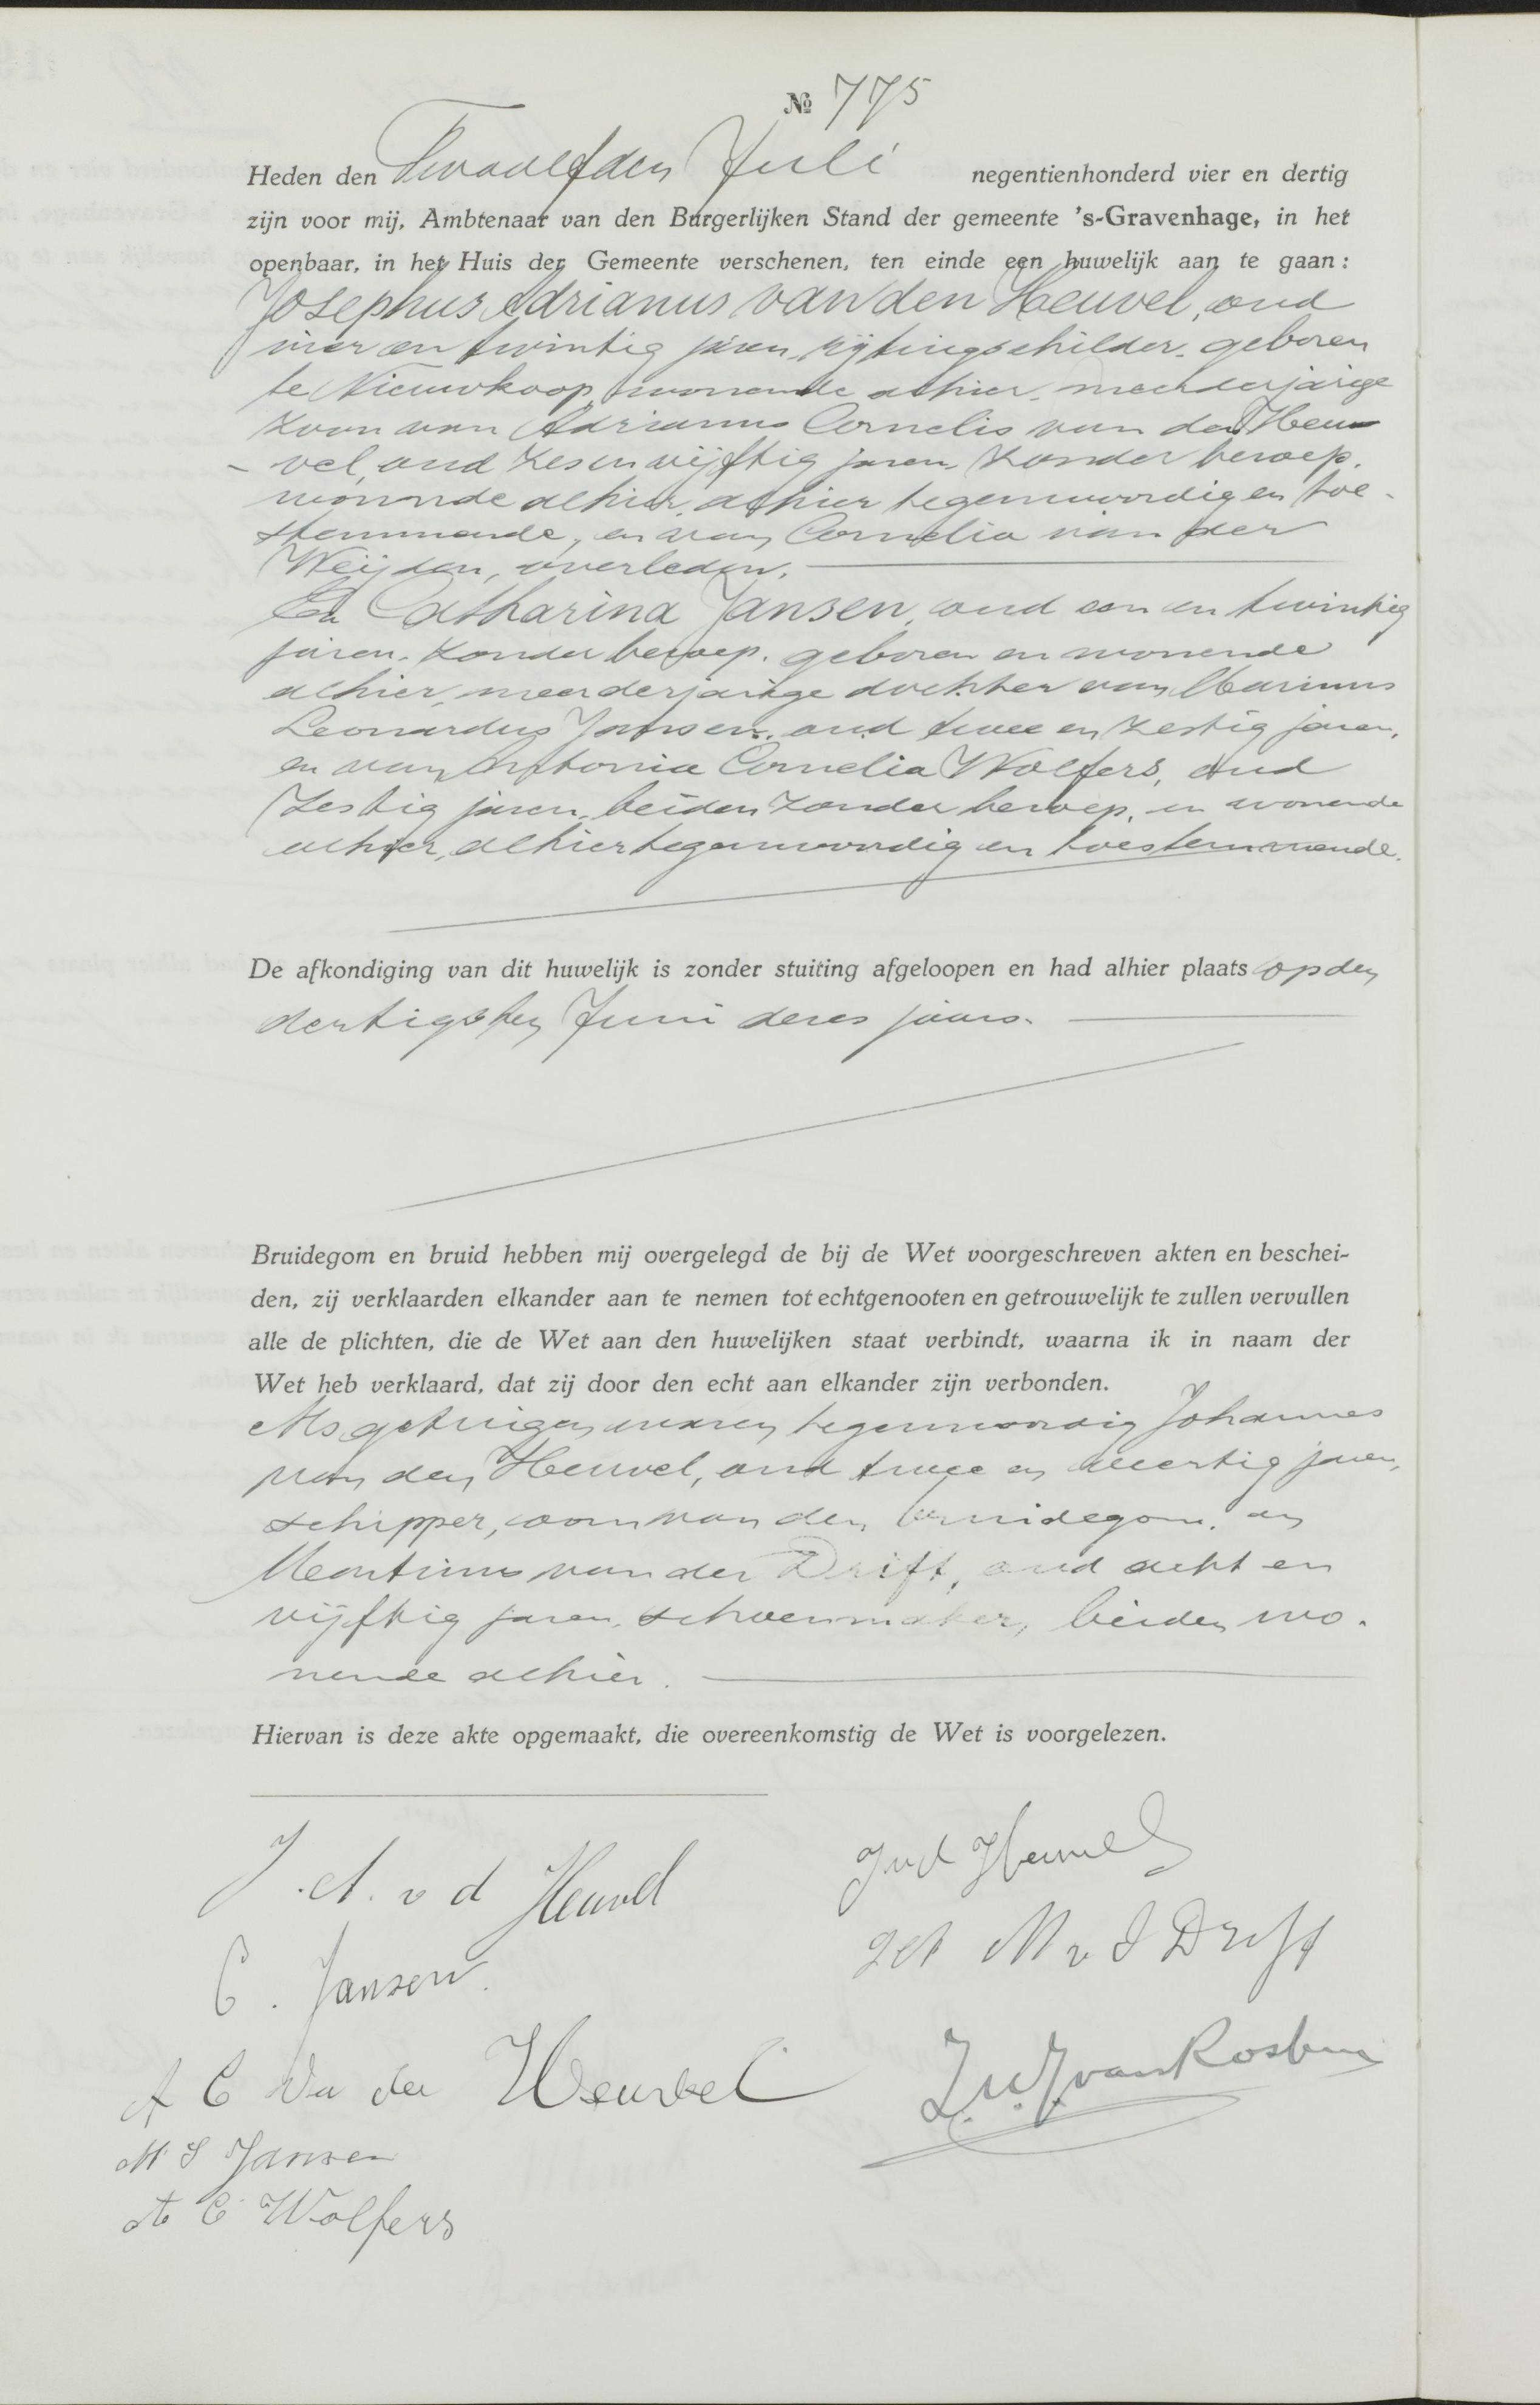 № 775
Heden den Twaalfden Juli negentienhonderd vier en dertig
zijn voor mij, Ambtenaar van den Burgerlijken Stand der gemeente 's-Gravenhage, in het
openbaar, in het Huis der Gemeente verschenen, ten einde een huwelijk aan te gaan:
Josephus Adrianus van den Heuvel, oud
vier en twintig jaren, rijtuigschilder, geboren
te Nieuwkoop, wonende alhier, meerderjarige
zoon van Adrianus Cornelis van den Heu-
-vel, oud zes en vijftig jaren, zonder beroep,
wonende alhier, alhier tegenwoordig en toe-
stemmende, en van Cornelia van der
Weijden, overleden.
En Catharina Jansen, oud een en twintig
jaren, zonder beroep, geboren en wonende
alhier, meerderjarige dochter van Marinus
Leonardus Jansen, oud twee en zestig jaren,
en van Antonia Cornelia Wolfers, oud
zestig jaren, beiden zonder beroep, en wonende
alhier, alhier tegenwoordig en toestemmende.
De afkondiging van dit huwelijk is zonder stuiting afgeloopen en had alhier plaats op den
dertigsten Juni dezes jaars.
Bruidegom en bruid hebben mij overgelegd de bij de Wet voorgeschreven akten en beschei-
den, zij verklaarden elkander aan te nemen tot echtgenooten en getrouwelijk te zullen vervullen
alle de plichten, die de Wet aan den huwelijken staat verbindt, waarna ik in naam der
Wet heb verklaard, dat zij door den echt aan elkander zijn verbonden.
Als getuigen waren tegenwoordig Johannes
van den Heuvel, oud twee en veertig jaren,
schipper, oom van den bruidegom, en
Martinus van der Drift, oud acht en
vijftig jaren, schoenmaker, beiden wo-
nende alhier.
Hiervan is deze akte opgemaakt, die overeenkomstig de Wet is voorgelezen.
J. A. v d Heuvel
J v d Heuvel
C. Jansen
M v d Drift
A C van den Heuvel
van Rossum
M L Jansen
A C Wolfers